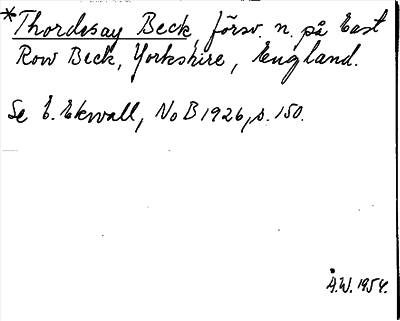 *Thordisay Beck, försv. n. på East
Row Beck, Yorkshire, England.
Se E. Ekwall, NoB 1926, s. 150.
Å.W. 1954.